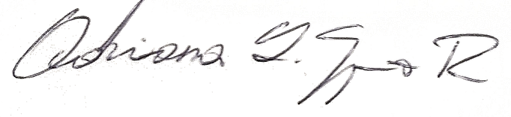 Adriana G. R